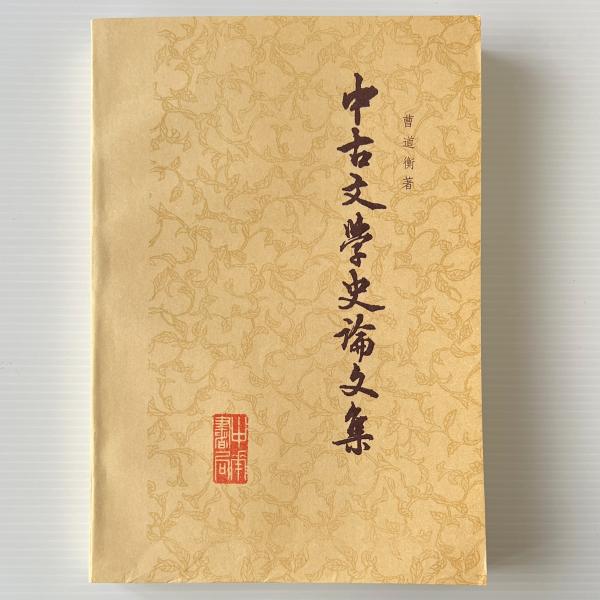 曹道衡著
中古文學史論文集
中華書局